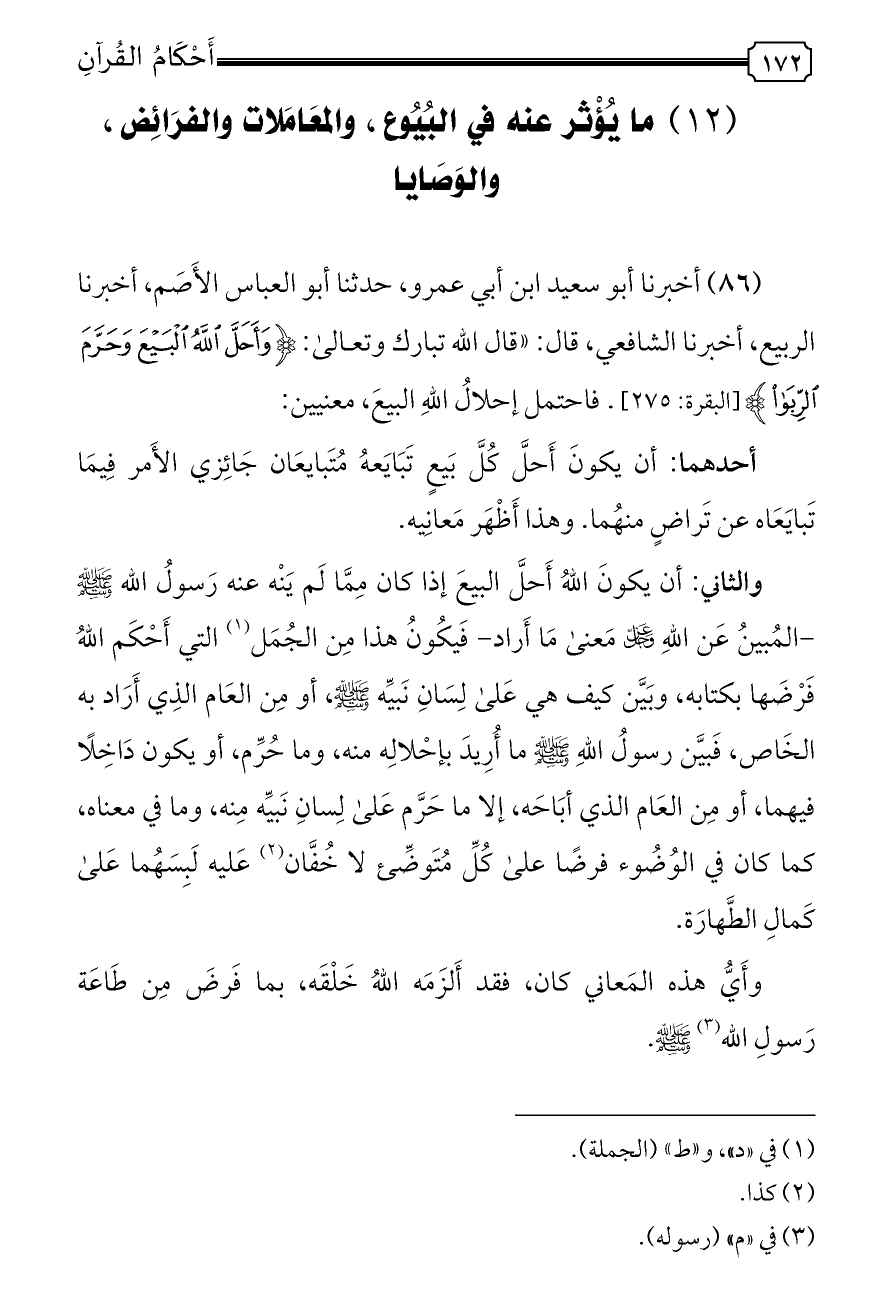 ١٧٢ أَحْكَامُ القُرآنِ
(١٢) ما يُؤْثر عنه في البُيُوع، والمعَامَلات والفرَائِض،
والوَصَايا
(٨٦) أخبرنا أبو سعيد ابن أبي عمرو، حدثنا أبو العباس الأَصَم، أخبرنا
الربيع، أخبرنا الشافعي، قال: «قال الله تبارك وتعالىٰ: ﴿وَأَحَلَّ ٱللَّهُ ٱلْبَيْعَ وَحَرَّمَ
ٱلرِّبَوٰا۟﴾ [البقرة: ٢٧٥]. فاحتمل إحلالُ اللهِ البيعَ، معنيين:
أحدهما: أن يكونَ أَحلَّ كُلَّ بَيعٍ تَبَايَعهُ مُتَبايعَان جَائِزي الأَمر فِيمَا
تَبايَعَاه عن تَراضٍ منهُما. وهذا أَظْهَر مَعانِيه.
والثاني: أن يكونَ اللهُ أَحلَّ البيعَ إذا كان مِمَّا لَم يَنْه عنه رَسولُ الله ﷺ
-المُبينُ عَن اللهِ ﷿ مَعنىٰ مَا أَراد- فَيكُونُ هذا مِن الجُمَل(١) التي أَحْكَم اللهُ
فَرْضَها بكتابه، وبَيَّن كيف هي عَلىٰ لِسَانِ نَبيِّه ﷺ، أو مِن العَام الذِي أَرَاد به
الخَاص، فَبيَّن رسولُ اللهِ ﷺ ما أُرِيدَ بإحْلالِه منه، وما حُرِّم، أو يكون دَاخِلًا
فيهما، أو مِن العَام الذي أبَاحَه، إلا ما حَرَّم عَلىٰ لِسانِ نَبيِّه مِنه، وما في معناه،
كما كان في الوُضُوء فرضًا علىٰ كُلِّ مُتَوضِّئ لا خُفَّان(٢) عَليه لَبِسَهُما عَلىٰ
كَمالِ الطَّهارَة.
وأَيُّ هذه المَعاني كان، فقد أَلزَمَه اللهُ خَلْقَه، بما فَرضَ مِن طَاعَة
رَسولِ الله(٣) ﷺ.
(١) في «د»، و«ط» (الجملة).
(٢) كذا.
(٣) في «م» (رسوله).